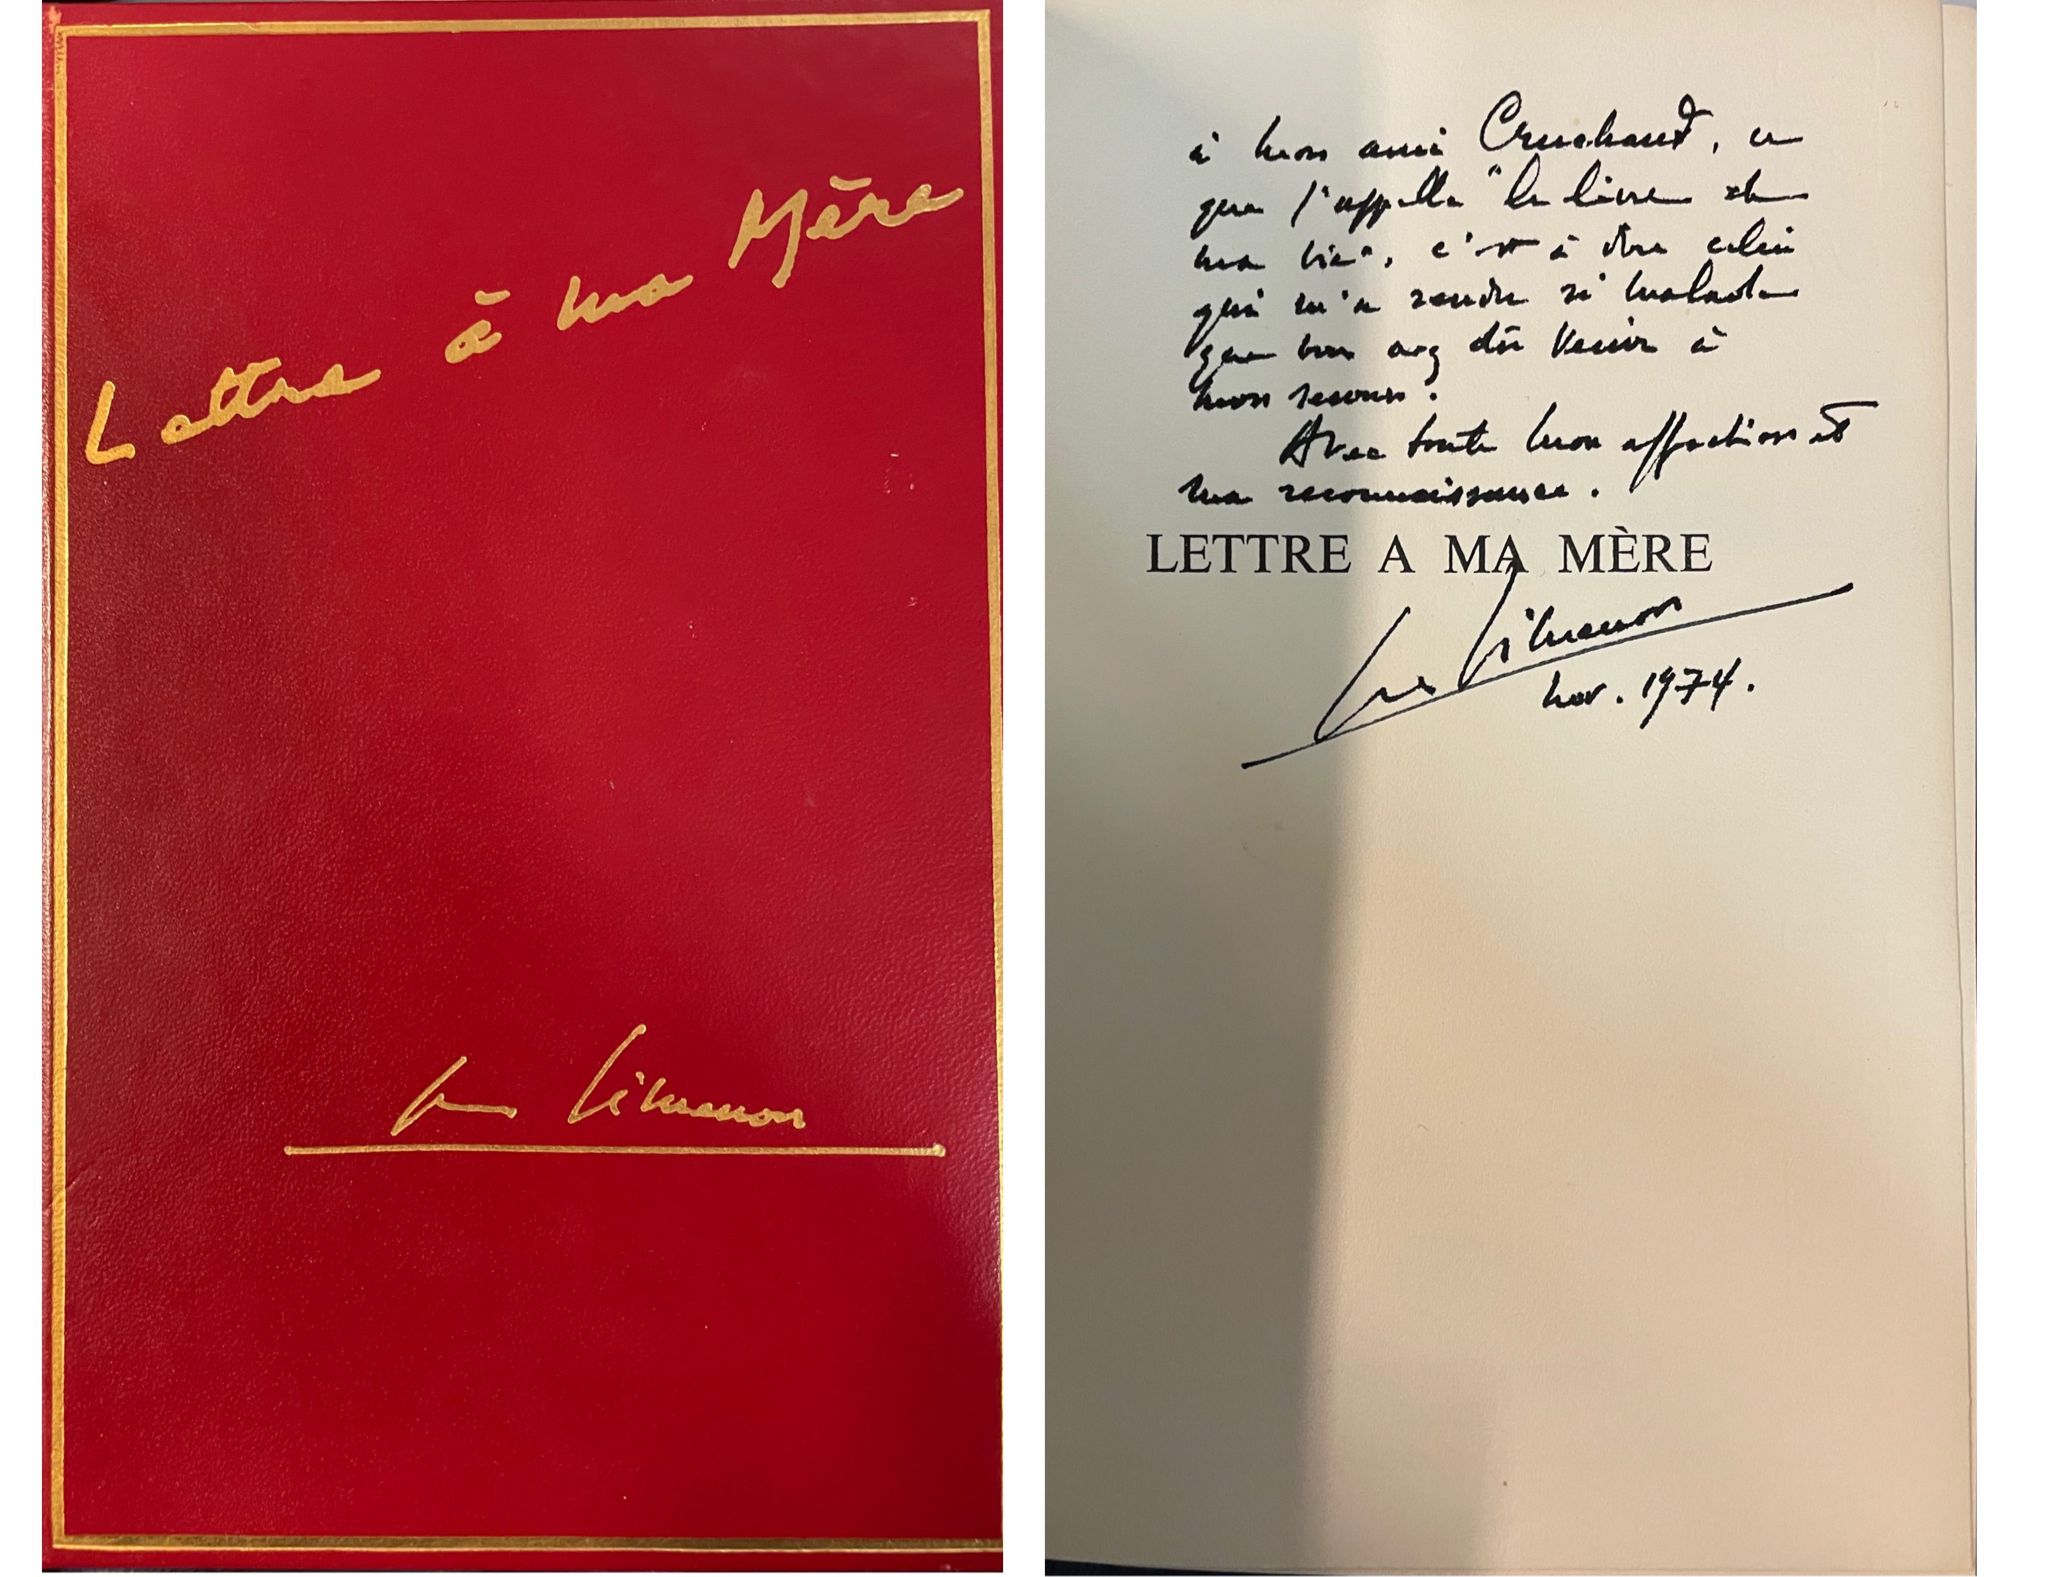 Lettre à ma Mère
Simenon
à mon ami Cruchaud, ce
que j'appelle "le livre de
ma vie", c'est à dire celui
qui m'a rendu si malade
que vous avez dû venir à
mon secours.
Avec toute mon affection et
ma reconnaissance.
LETTRE A MA MÈRE
Simenon
nov. 1974.